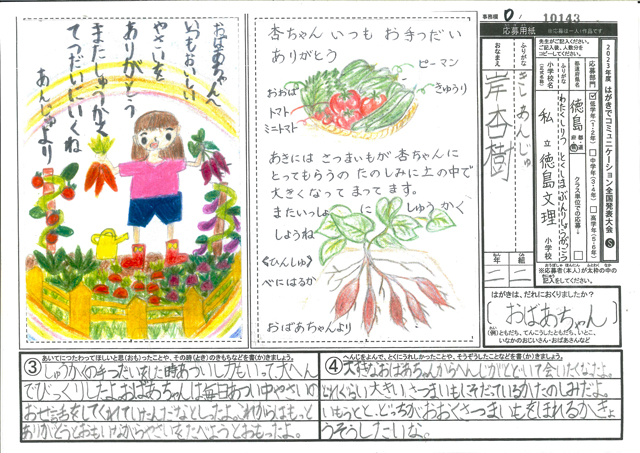 おばあちゃんへ
いつもおいしい
やさいを
ありがとう
またしゅうかく
てつだいにいくね
あんじゅより
杏ちゃん いつも お手つだい
ありがとう
ピーマン
きゅうり
おおば
トマト
ミニトマト
あきには さつまいもが 杏ちゃんに
とってもらうの たのしみに 土の中で
大きくなって まって ます。
またいっしょ に しゅうかく
しょうね
《ひんしゅ》
べにはるか
おばあちゃんより
事務欄
10143
応募用紙
※応募は一人1作品です
2023年度 はがきでコミュニケーション全国発表大会
応募部門
低学年(1・2年)
中学年(3・4年)
高学年(5・6年)
先生がご記入ください。
ご記入後、人数分を
コピーしてください。
都道府県名
徳島
クラス単位での応募
ふりがな
小学校名
(正式名称)
わたくしりつ とくしまぶんりしょうがっこう
私 立 徳島文理 小学校
ふりがな
きし あんじゅ
おなまえ
岸 杏樹
年
二
組
二
※応募者(本人)が太枠の中の
記入をしてください。
はがきは、だれにおくりましたか?
おばあちゃん
(例)ともだち、てんこうしたともだち、いとこ、
いなかのおじいさん・おばあさんなど
③ あいてにつたわってほしいと思(おも)ったことや、その時(とき)のきもちなどを書(か)きましょう。
しゅうかくの手つだいをした時あついし力もいって大へん
でびっくりしたよ。おばあちゃんは毎日あつい中やさいの
おせ話をしてくれていたんだなとしったよ。これからはもっと
ありがとうとおもいながらやさいをたべようとおもったよ。
④ へんじをよんで、とくにうれしかったことや、そうぞうしたことなどを書(か)きましょう。
大好きなおばあちゃんからへんじがとどいて会いたくなったよ。
どれくらい大きいさつまいもにそだっているかたのしみだよ。
いもうとと、どっちがおおくさつまいもをほれるかきょ
うそうしたいな。